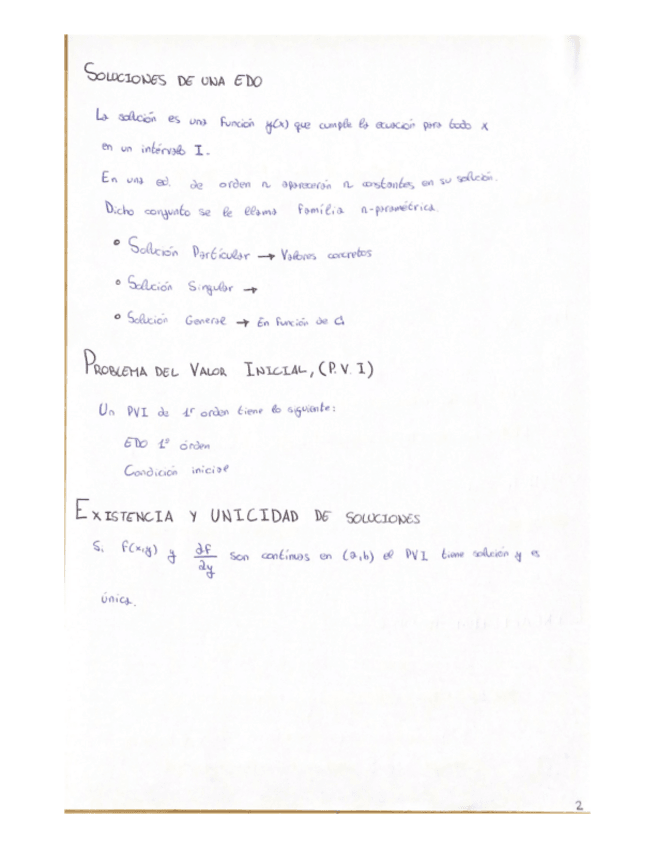 SOLUCIONES DE UNA EDO
La solución es una función y(x) que cumple la ecuación para todo x
en un intérvalo I.
En una ed. de orden n aparecerán n constantes en su solución.
Dicho conjunto se le llama familia n-paramétrica.
• Solución Particular → Valores concretos
• Solución Singular →
• Solución General → En función de C₁
PROBLEMA DEL VALOR INICIAL, (P.V.I)
Un PVI de 1º orden tiene lo siguiente:
EDO 1º órden
Condición inicial
EXISTENCIA Y UNICIDAD DE SOLUCIONES
Si f(x,y) y ∂f/∂y son contínuas en (a,b) el PVI tiene solución y es
única.
2